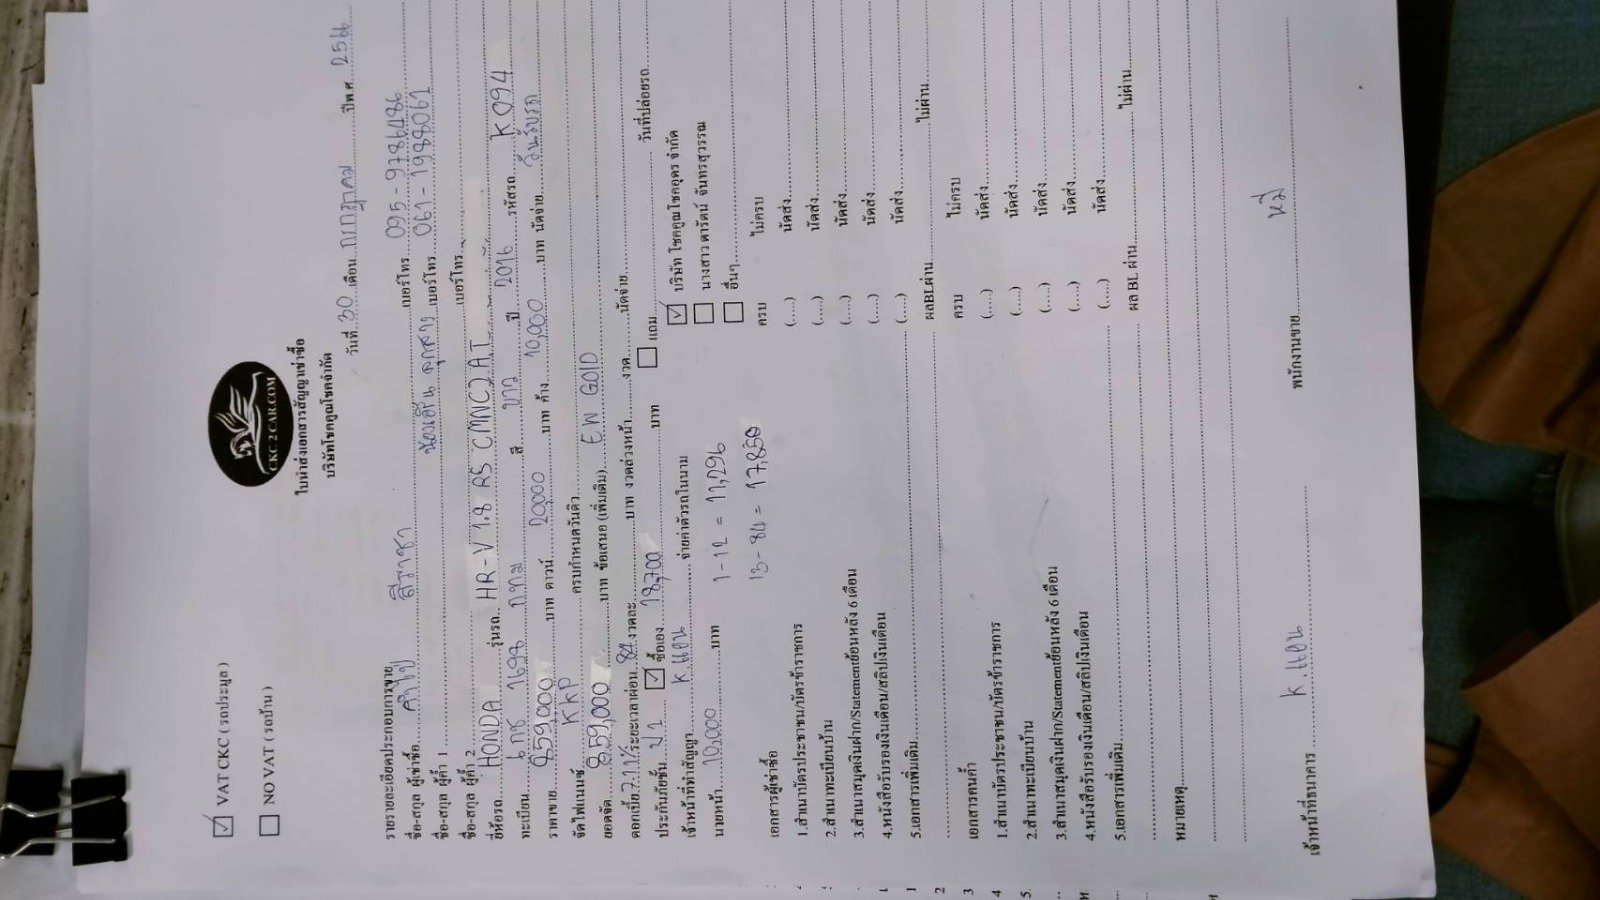 CKC 2 CAR.COM
ใบนำส่งเอกสารสัญญาเช่าซื้อ
บริษัทโชคคูณโชคจำกัด
☑ VAT CKC ( รถประมูล )
☐ NO VAT ( รถบ้าน )
วันที่ 30 เดือน กรกฎาคม ปีพ.ศ. 2566
รายรายละเอียดประกอบการขาย
ชื่อ-สกุล ผู้เช่าซื้อ เบอร์โทร 095-9786486
ชื่อ-สกุล ผู้ค้ำ 1 เบอร์โทร 061-1988061
ชื่อ-สกุล ผู้ค้ำ 2 เบอร์โทร
ยี่ห้อรถ HONDA รุ่นรถ HR-V 1.8 RS CMNC2 A.T
ทะเบียน 1698 กทม สี ขาว ปี 2016 รหัสรถ K094
ราคาขาย 859,000 บาท ดาวน์ 20,000 บาท ค้าง 10,000 บาท นัดจ่าย วันรับรถ
จัดไฟแนนซ์ KKP ครบกำหนดวันคิว
ยอดจัด 859,000 บาท ข้อเสนอ (เพิ่มเติม) EW GOLD
ดอกเบี้ย 7.11% ระยะเวลาผ่อน 84 งวดละ บาท งวดล่วงหน้า งวด นัดจ่าย
ประกันภัยชั้น ป1 ☑ ซื้อเอง 18,700 บาท ☐ แถม วันที่ปล่อยรถ
เจ้าหน้าที่ทำสัญญา K.แอน จ่ายค่าตัวรถในนาม ☑ บริษัท โชคคูณโชคอุดร จำกัด
นายหน้า 10,000 บาท 1-12 = 11,296 ☐ นางสาว ดารัตน์ จันทรสุวรรณ
☐ อื่นๆ
13-84 = 17,850
เอกสารผู้เช่าซื้อ ครบ ไม่ครบ
1.สำเนาบัตรประชาชน/บัตรข้าราชการ (.....) นัดส่ง
2.สำเนาทะเบียนบ้าน (.....) นัดส่ง
3.สำเนาสมุดเงินฝาก/Statementย้อนหลัง 6 เดือน (.....) นัดส่ง
4.หนังสือรับรองเงินเดือน/สลิปเงินเดือน (.....) นัดส่ง
5.เอกสารเพิ่มเติม (.....) นัดส่ง
ผลBLผ่าน ไม่ผ่าน
เอกสารคนค้ำ ครบ ไม่ครบ
1.สำเนาบัตรประชาชน/บัตรข้าราชการ (.....) นัดส่ง
2.สำเนาทะเบียนบ้าน (.....) นัดส่ง
3.สำเนาสมุดเงินฝาก/Statementย้อนหลัง 6 เดือน (.....) นัดส่ง
4.หนังสือรับรองเงินเดือน/สลิปเงินเดือน (.....) นัดส่ง
5.เอกสารเพิ่มเติม (.....) นัดส่ง
ผล BL ผ่าน ไม่ผ่าน
หมายเหตุ
เจ้าหน้าที่ธนาคาร K.แอน พนักงานขาย